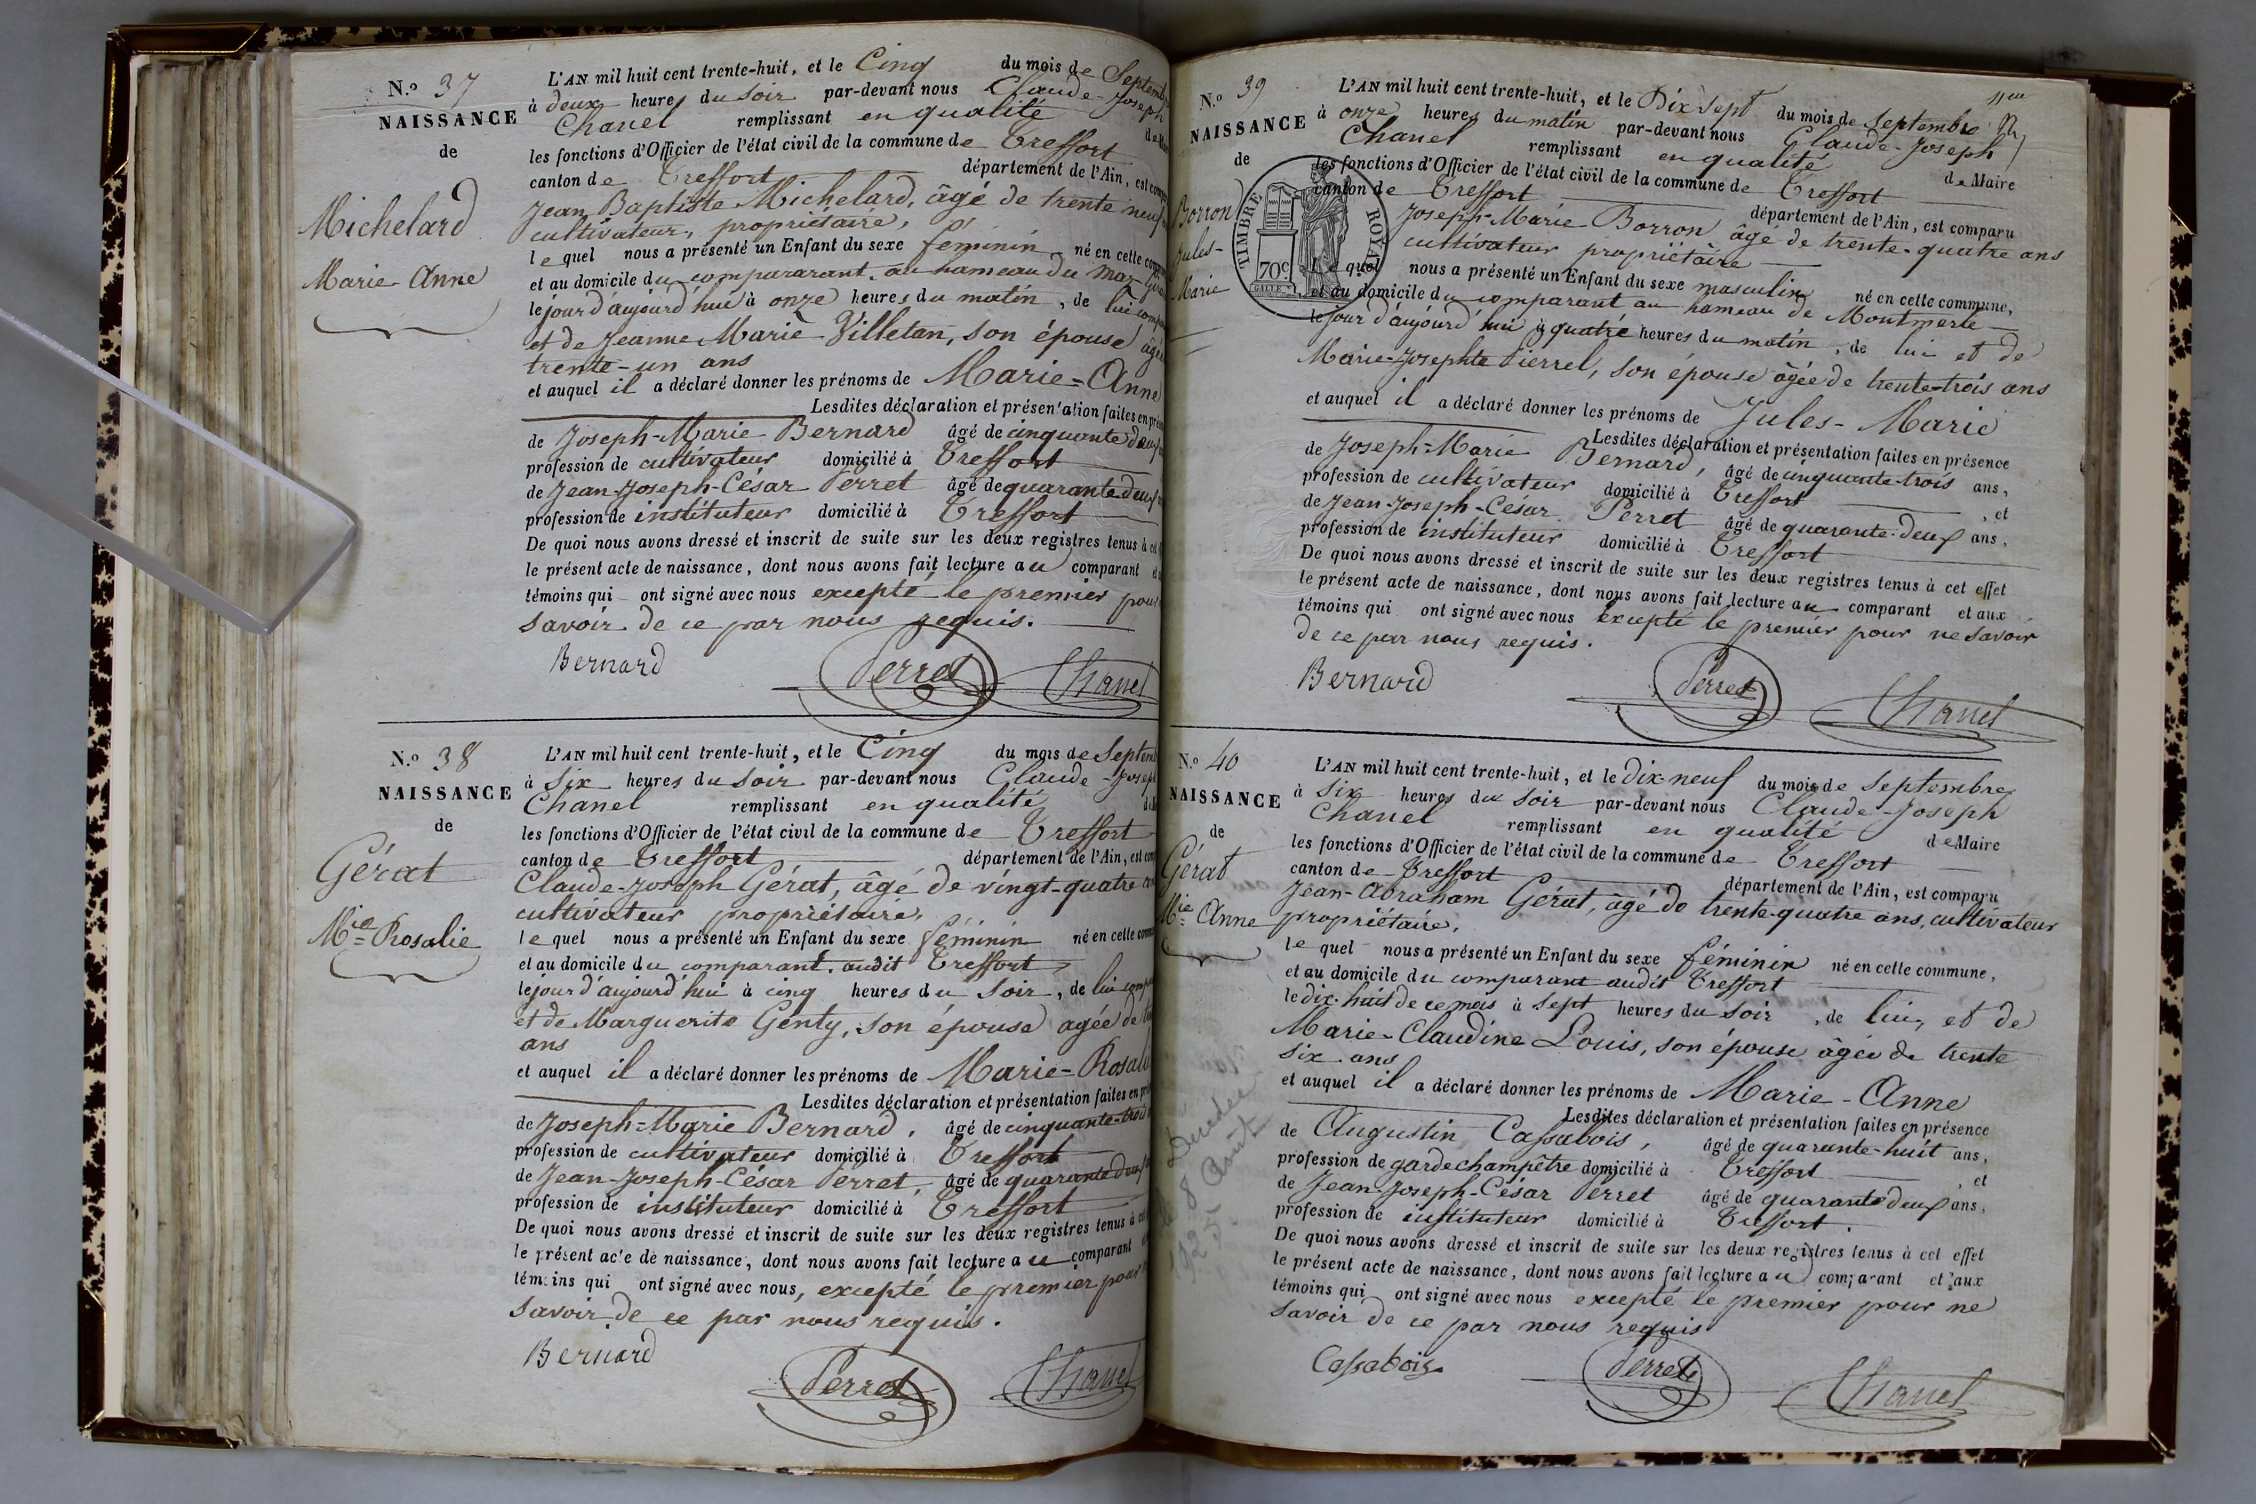 N.o 37
NAISSANCE
de
Michelard
Marie Anne
L'AN mil huit cent trente-huit, et le Cinq du mois de Septemb
à deux heures du Soir par-devant nous Claude-Joseph
Chanel remplissant en qualité de
les fonctions d'Officier de l'état civil de la commune de Treffort
canton de Treffort département de l'Ain, est comp
Jean Baptiste Michelard, âgé de trente neuf
cultivateur, propriétaire,
le quel nous a présenté un Enfant du sexe féminin né en cette com
et au domicile du comparant au hameau du
le jour d'aujourd'hui à onze heures du matin, de lui comp
et de Jeanne Marie Villetan, son épouse âgée
trente-un ans
et auquel il a déclaré donner les prénoms de Marie=Anne
Lesdites déclaration et présentation faites en pré
de Joseph-Marie Bernard âgé de cinquante
profession de cultivateur domicilié à Treffort
de Jean-Joseph-César Perret âgé de quarante deux
profession de instituteur domicilié à Treffort
De quoi nous avons dressé et inscrit de suite sur les deux registres tenus à cet
le présent acte de naissance, dont nous avons fait lecture au comparant et
témoins qui ont signé avec nous excepté le premier pour
savoir de ce par nous requis.
Bernard Perret Chanel
N.o 38
NAISSANCE
de
Gérat
Mie Rosalie
L'AN mil huit cent trente-huit, et le Cinq du mois de Septem
à Six heures du Soir par-devant nous Claude-Joseph
Chanel remplissant en qualité
les fonctions d'Officier de l'état civil de la commune de Treffort
canton de Treffort département de l'Ain, est com
Claude-Joseph Gérat, âgé de vingt-quatre
cultivateur propriétaire,
le quel nous a présenté un Enfant du sexe féminin né en cette comm
et au domicile du comparant audit Treffort
le jour d'aujourd'hui à cinq heures du Soir, de lui comp
et de Marguerite Genty, son épouse agée de
ans
et auquel il a déclaré donner les prénoms de Marie=Rosali
Lesdites déclaration et présentation faites en pré
de Joseph=Marie Bernard, âgé de cinquante-trois
profession de cultivateur domicilié à Treffort
de Jean-Joseph-César Perret, âgé de quarante deux
profession de instituteur domicilié à Treffort
De quoi nous avons dressé et inscrit de suite sur les deux registres tenus à cet
le présent acte de naissance, dont nous avons fait lecture au comparant
témoins qui ont signé avec nous, excepté le premier pour
savoir de ce par nous requis.
Bernard Perret Chanel
N.o 39
NAISSANCE
de
Borron
Jules-
Marie
TIMBRE ROYAL
70c
L'AN mil huit cent trente-huit, et le Dix Sept du mois de Septembre
à onze heures du matin par-devant nous Claude-Joseph
Chanel remplissant en qualité de Maire
les fonctions d'Officier de l'état civil de la commune de Treffort
canton de Treffort département de l'Ain, est comparu
Joseph-Marie Borron âgé de trente-quatre ans
cultivateur propriétaire
Le quel nous a présenté un Enfant du sexe masculin né en cette commune,
et au domicile du comparant au hameau de Montmerle
le jour d'aujourd'hui à quatre heures du matin, de lui et de
Marie-Josephte Pierrel, son épouse âgée de trente-trois ans
et auquel il a déclaré donner les prénoms de Jules-Marie
Lesdites déclaration et présentation faites en présence
de Joseph=Marie Bernard, âgé de cinquante-trois ans,
profession de cultivateur domicilié à Treffort, et
de Jean-Joseph-César Perret âgé de quarante-deux ans,
profession de instituteur domicilié à Treffort
De quoi nous avons dressé et inscrit de suite sur les deux registres tenus à cet effet
le présent acte de naissance, dont nous avons fait lecture au comparant et aux
témoins qui ont signé avec nous excepté le premier pour ne savoir
de ce par nous requis.
Bernard Perret Chanel
N.o 40
NAISSANCE
de
Gérat
Mie Anne
L'AN mil huit cent trente-huit, et le dix-neuf du mois de Septembre
à Six heures du Soir par-devant nous Claude-Joseph
Chanel remplissant en qualité de Maire
les fonctions d'Officier de l'état civil de la commune de Treffort
canton de Treffort département de l'Ain, est comparu
Jean-Abraham Gérat, âgé de trente-quatre ans, cultivateur
propriétaire,
le quel nous a présenté un Enfant du sexe féminin né en cette commune,
et au domicile du comparant audit Treffort
le dix-huit de ce mois à sept heures du Soir, de lui, et de
Marie-Claudine Louis, son épouse âgée de trente
Six ans
et auquel il a déclaré donner les prénoms de Marie-Anne
Lesdites déclaration et présentation faites en présence
de Augustin Cassabois, âgé de quarante-huit ans,
profession de garde champêtre domicilié à Treffort, et
de Jean-Joseph-César Perret âgé de quarante deux ans,
profession de instituteur domicilié à Treffort.
De quoi nous avons dressé et inscrit de suite sur les deux registres tenus à cet effet
le présent acte de naissance, dont nous avons fait lecture au comparant et aux
témoins qui ont signé avec nous excepté le premier pour ne
savoir de ce par nous requis
Cassabois Perret Chanel